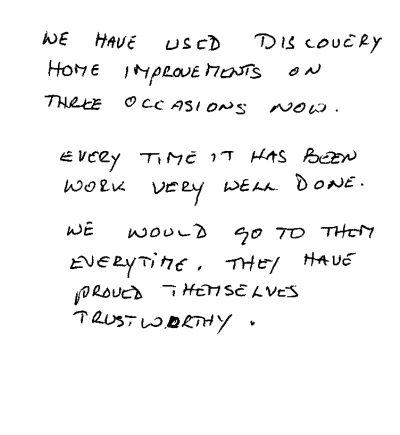 WE HAVE USED DISCOVERY
HOME IMPROVEMENTS ON
THREE OCCASIONS NOW.
EVERY TIME IT HAS BEEN
WORK VERY WELL DONE.
WE WOULD GO TO THEM
EVERYTIME. THEY HAVE
PROVED THEMSELVES
TRUSTWORTHY.